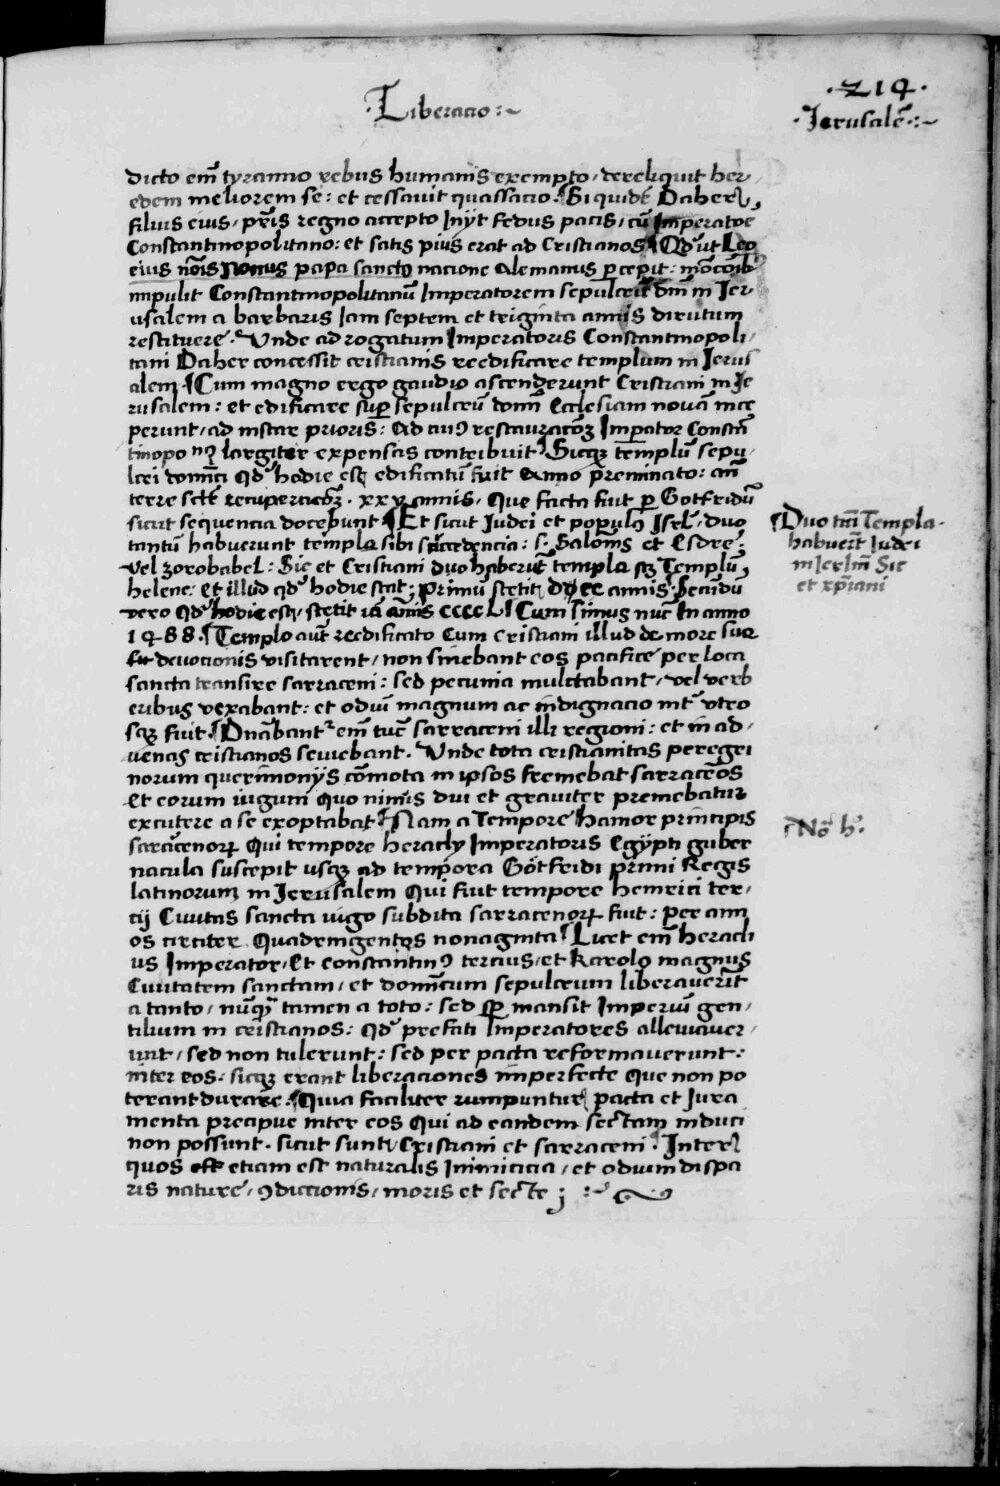 ·Liberatio:~
·214·
·Jerusalē·:~
dicto em̄ tyranno rebus humanis exempto / dereliquit her/
edem meliorem se: et cessauit quassatio. Siquidē Daher
filius eius / pr̄is regno accepto Inijt fedus pacis / cū Imperatore
Constantinopolitano: et satis pius erat ad Cristianos ¶ Qd' ut Leo
eius nōis Nonus papa sanctus nacione Alemanus percepit:
impulit Constantinopolitanū Imperatorem sepulcrū dn̄i in Jer/
usalem a barbaris Iam septem et triginta annis dirutum
restituere. Unde ad rogatum Imperatoris Constantinopoli/
tani Daher concessit cristianis reedificare templum in Jerus
alem ¶ Cum magno ergo gaudio ascenderunt Cristiani in Je
rusalem: et edificare super sepulcrū domī Ecclesiam nouā ince
perunt / ad instar prioris: Ad cuiꝰ restauracōꝫ Imperator Constā
tinopo nꝰ largiter expensas contribuit. Sicqꝫ templū sepu/
lcri domīci qd' hodie est edificatū fuit Anno preminato: an̄
terre scē recuperacōꝫ. xxv annis. Que facta fuit per Gotfridū
sicut sequencia docebunt ¶ Et sicut Iudei et populꝰ Isrl' / duo
tantū habuerunt templa sibi succedencia: s. Salomīs et Esdre;
vel Zorobabel: Sic et Cristiani duo habuerūt templa sꝫ Templū
helene: et illud qd' hodie stat; primū stetit annis. Secundū
vero qd' hodie est / stetit iā annis ccccL ¶ Cum simus nūc In anno
1488. ¶ Templo autē reedificato Cum cristiani illud de more sue
deuocionis visitarent / non sinebant eos pacifice per loca
sancta transire sarraceni: sed pecunia mulctabant / vel verb
eribus vexabant: et odiū magnum ac indignacio int' vtro
sqꝫ fuit. ¶ Dn̄abantʳ em̄ tūc sarraceni illi regioni: et in ad/
uenas cristianos seuiebant. Unde tota cristianitas peregri
norum querimonijs cōmota in ipsos fremebat sarracēos
et eorum iugum quo nimis diu et grauiter premebatur
excutere a se exoptabat ¶ Nam a Tempore hamor principis
sarracenorꝝ Qui tempore heraclij Imperatoris Egypti guber
nacula suscepit usqꝫ ad tempora Gotfridi primi Regis
latinorum in Jerusalem Qui fuit tempore henrici ter/
cij Ciuitas sancta iugo subdita sarracenorꝝ fuit: per ann
os circiter Quadringentos nonaginta ¶ Licet em̄ heracli
us Imperator / et constantinꝰ tercius / et Karolꝰ magnus
Ciuitatem sanctam / et domīcum sepulcrum liberauerīt
a tanto / nūqꝫ tamen a toto: sed semper mansit Imperiū gen/
tilium in cristianos: qd' prefati Imperatores alleuiauer/
unt / sed non tulerunt: sed per pacta reformauerunt:
inter eos: sicqꝫ erant liberaciones imperfecte que non po
terant durare. ¶ Quia faciliter rumpuntur pacta et Iura
menta precipue inter eos Qui ad eandem sectam induci
non possunt. sicut sunt Cristiani et sarraceni. Inter
quos etiam est naturalis Inimicicia / et odium dispa
ris nature / ꝯdicionis / moris et secte ; :~
¶ Duo tm̄ Templa·
habuerūt Iudei
in Ierl'm Sic
et xp̄iani
¶ Nō h'.